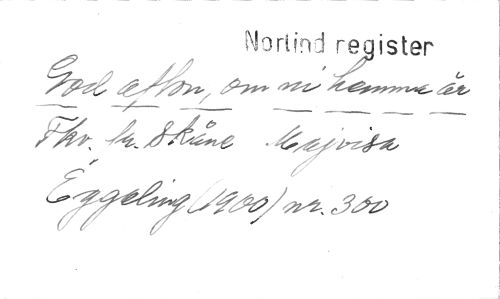 Norlind register
God afton, om ni hemma är
Fkv. fr. Skåne Majvisa
Eggeling (1900) nr. 300